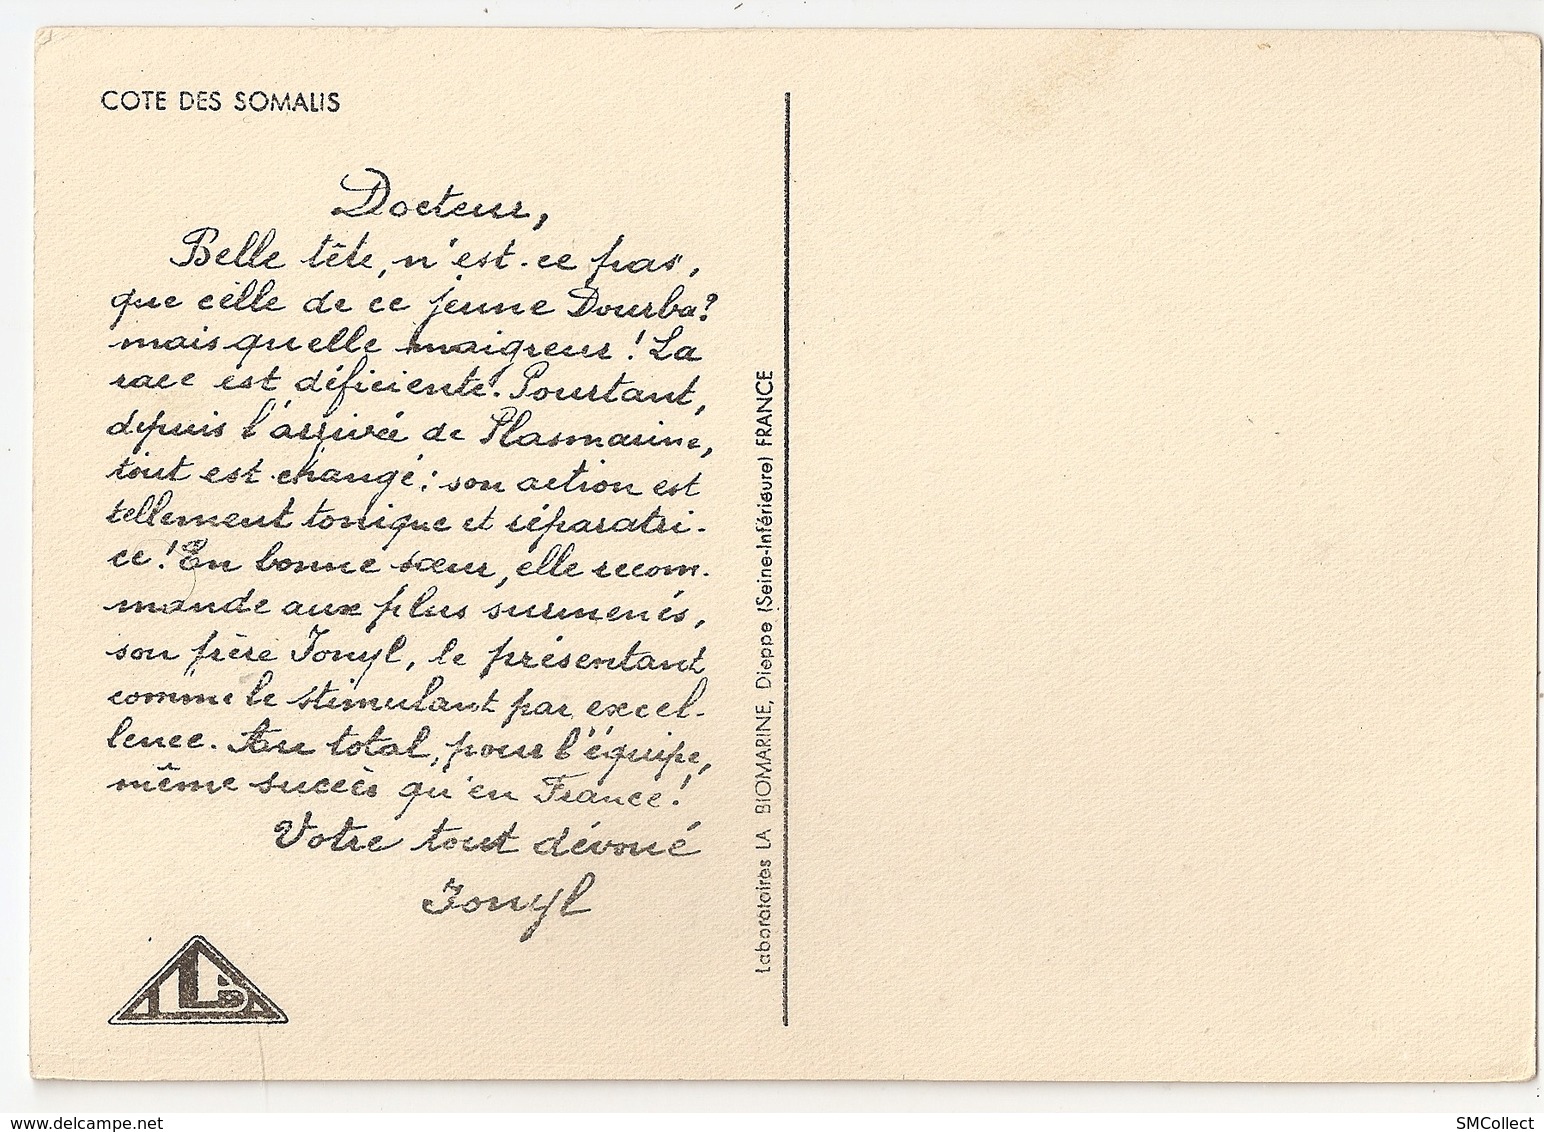 COTE DES SOMALIS
Docteur,
Belle tête, n'est-ce pas,
que celle de ce jeune Dourba?
mais quelle maigreur! La
race est déficiente. Pourtant,
depuis l'arrivée de Plasmarine,
tout est changé: son action est
tellement tonique et réparatri-
ce! En bonne sœur, elle recom-
mande aux plus surmenés,
son frère Ionyl, le présentant
comme le stimulant par excel-
lence. Au total, pour l'équipe,
même succès qu'en France!
Votre tout dévoué
Ionyl
Laboratoires LA BIOMARINE, Dieppe (Seine-Inférieure) FRANCE
www.delcampe.net
SMCollect